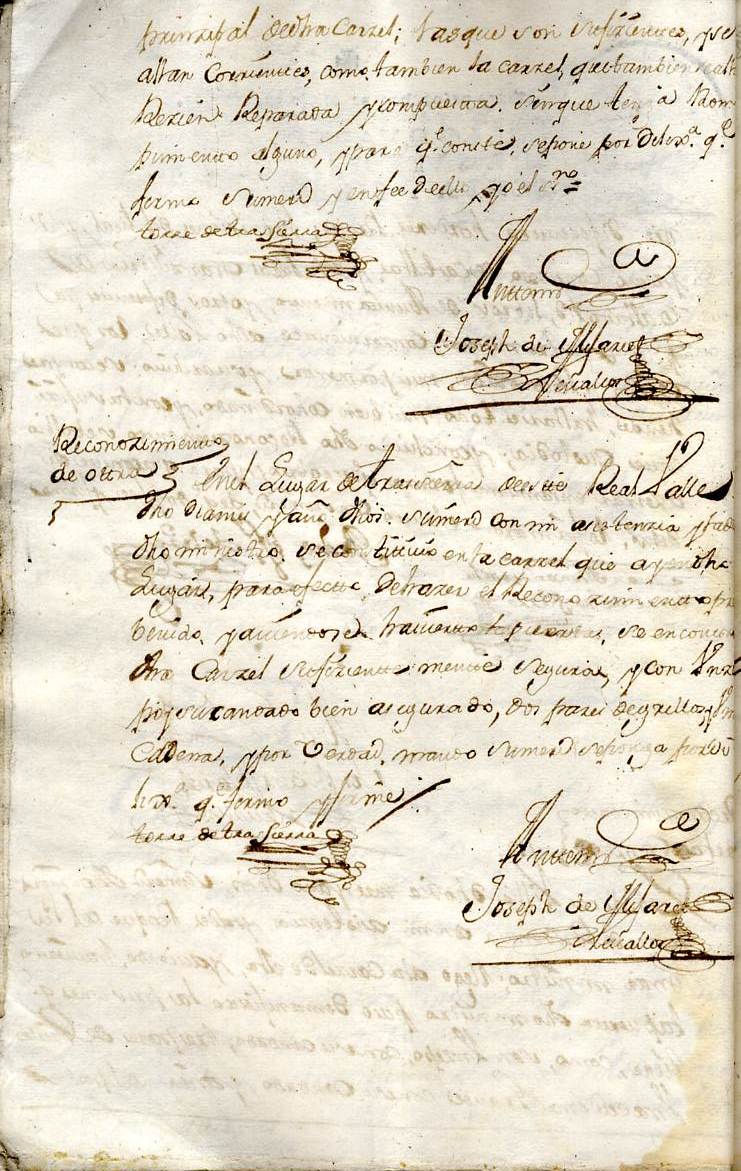 prinzipal de dha Carzel; las que son sufizientes, y se
allan Corrientes, como tambien la carzel, que tambien
Rezien Reparada y compuesta. sin que tenga Rom
pimiento alguno, y para q.e conste, se pone por Dilix.a q.e
firmo sumerd y en fee de ello, yo el S.no
torre de tra Sierra
Anttonio
Joseph de
Zevallos
Reconozimiento
de ottra
En el Lugar de trasierra de este Real Valle
dho dia mes y año dhos. sumerd con mi asistenzia y
dho ministro. se constituio en la carzel que ay en dho
Lugar, para efectto, de hazer el Reconozimientto pre
benido, y auiendose hauierto las puertas, se encontro
dha Carzel sufizientemente segura, y con
po y su candado bien asegurado, dos pares de grillos y
Cadena, y por Verdad, mando sumerd se ponga por
lix.a q.e firmo y firme
torre de tra Sierra
Anttonio
Joseph de
Zevallos